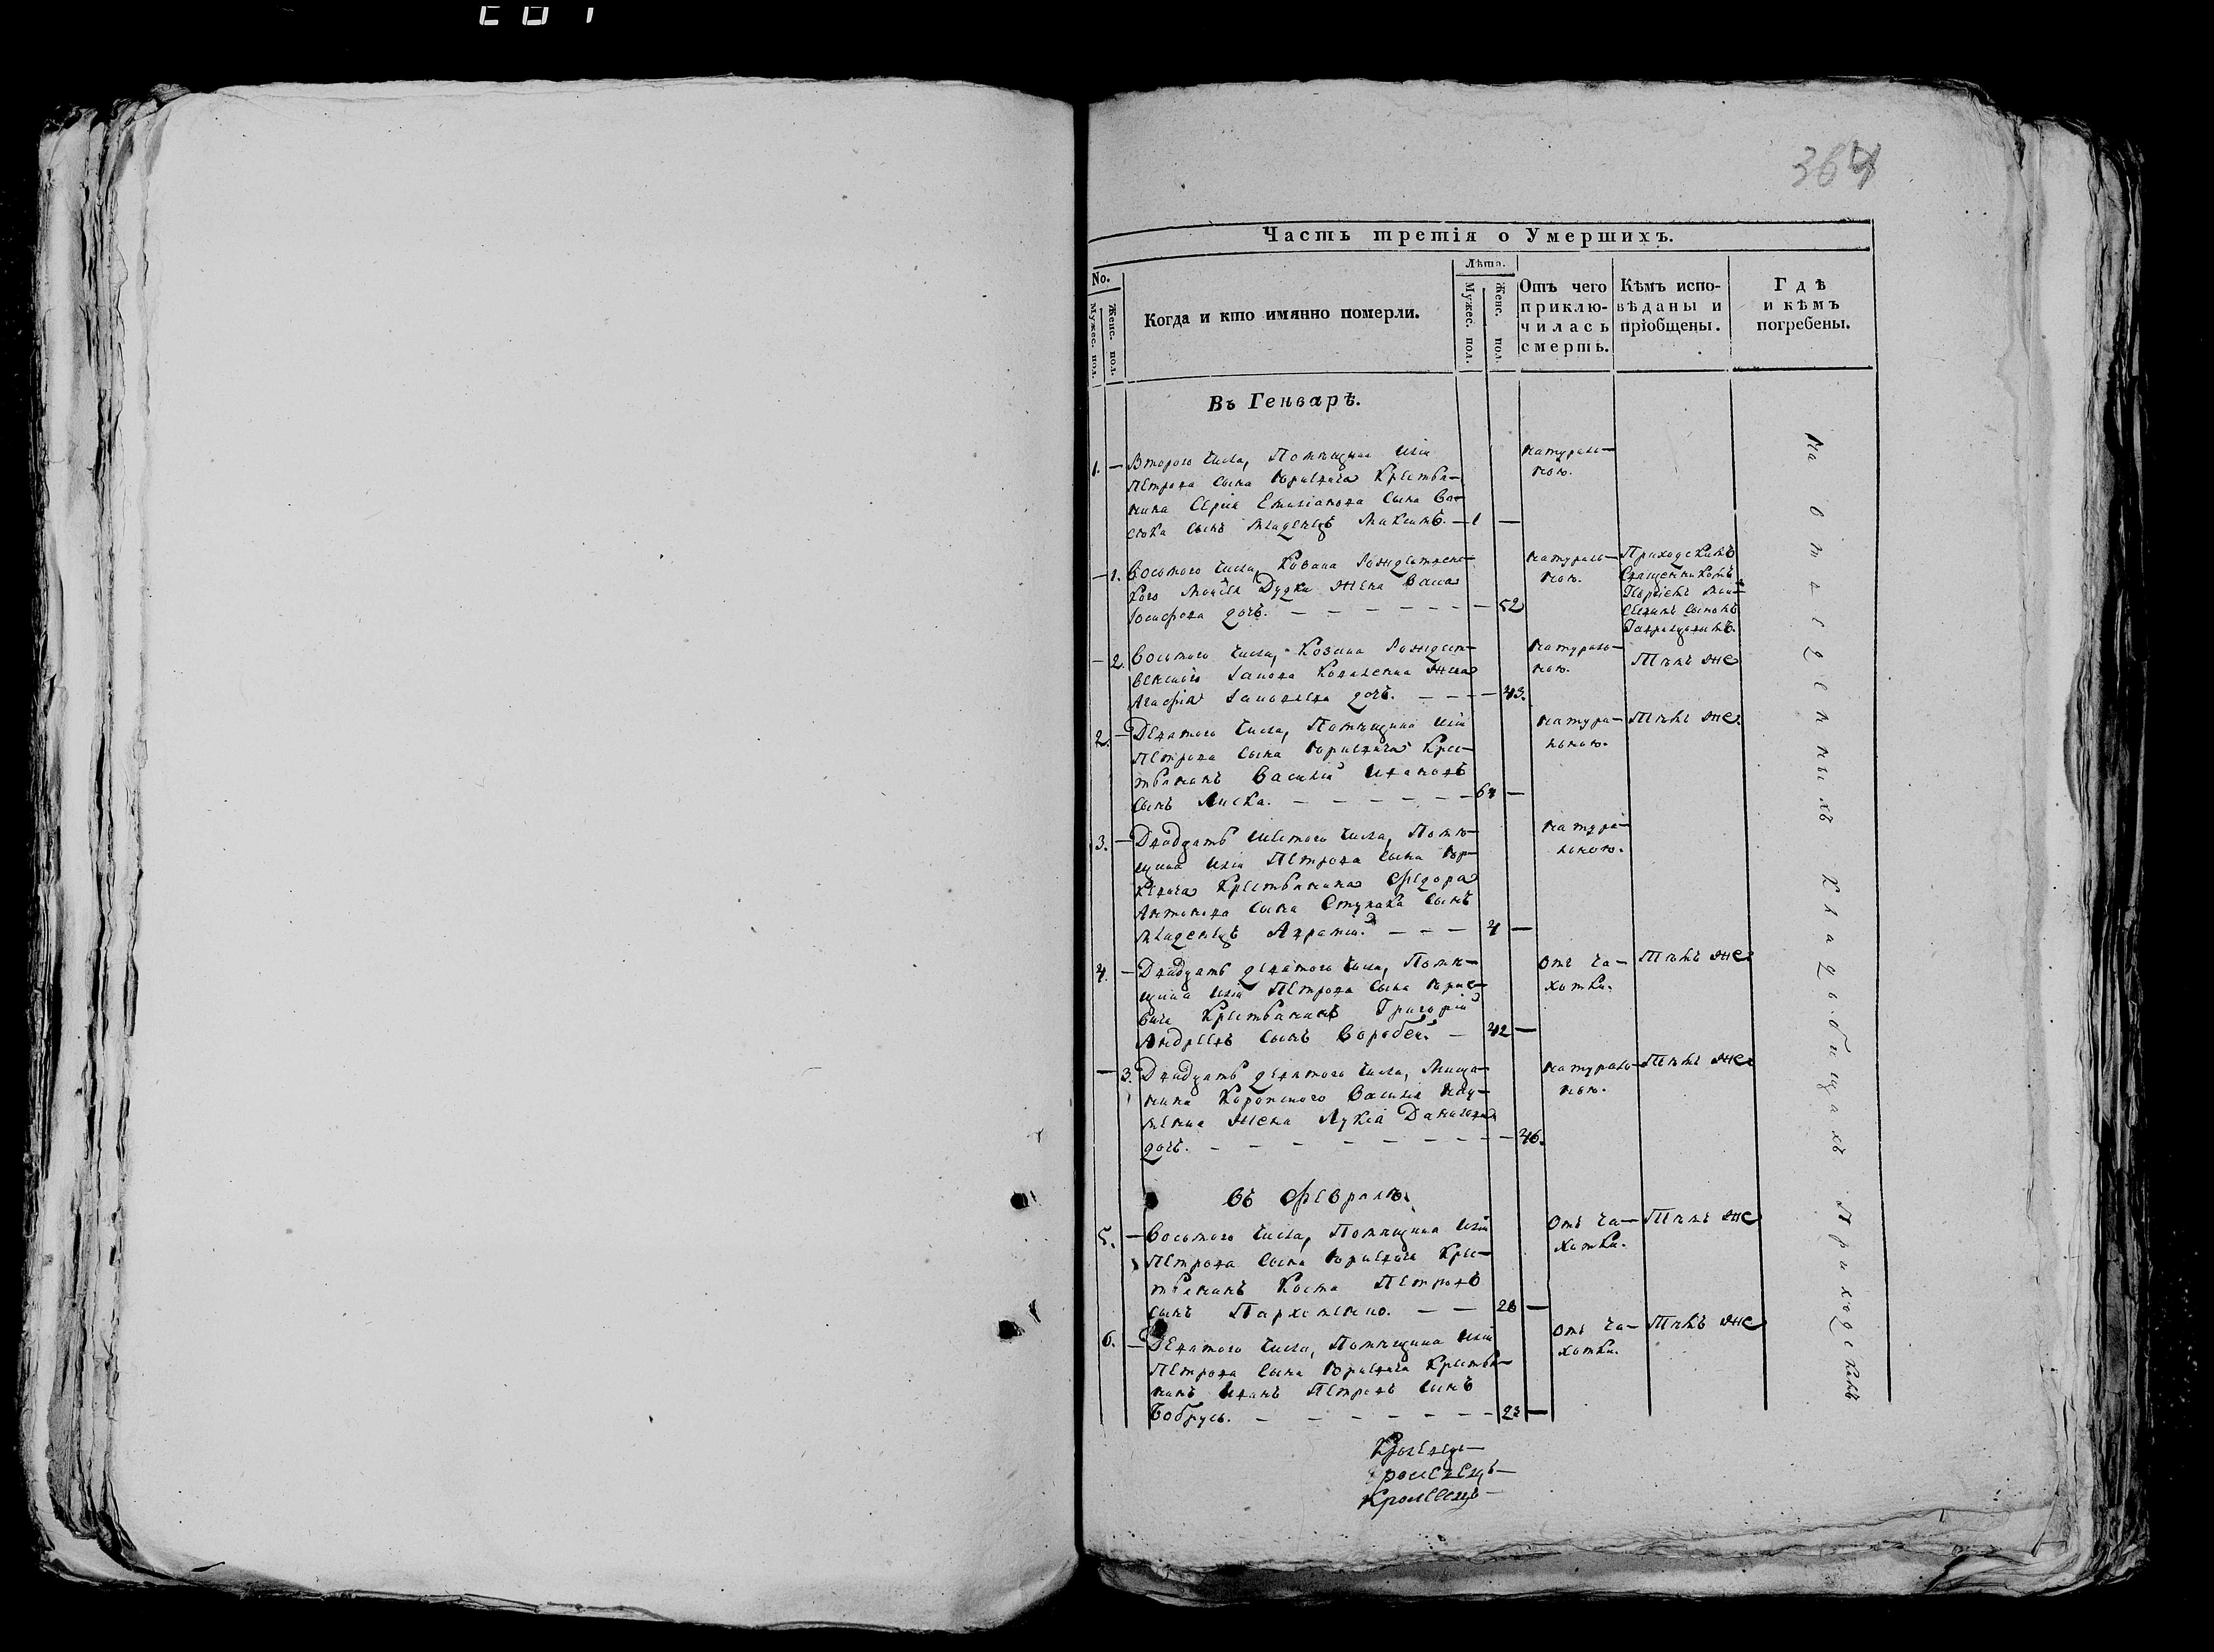 364
Часть третія о Умершихъ.
No.
Мужес. пол.
Женс. пол.
Когда и кто имянно померли.
Лѣта.
Мужес. пол.
Женс. пол.
Отъ чего приклю-
чилась смерть.
Кѣмъ испо-
вѣданы и
пріобщены.
Гдѣ
и кѣмъ
погребены.
Въ Генварѣ.
1. — Втораго числа, Помѣщика Иліи
Петрова сына Юркевича Крестья-
нина Сергія Емиліанова сына
сынъ младенецъ Максимъ. — 1 —
натураль-
ною.
— 1. Восьмого числа, Козака Рождественс-
кого Моисея Дудки жена
Іосифова дочь. — — 52
натураль-
ною.
Приходскимъ
Священникомъ
сыномъ
— 2. Восьмого числа, Козака Рождест-
венского Коваленка жена
Агафія дочь. — — 43.
натураль-
ною.
Тѣмъ же
2. — Девятого числа, Помѣщика Иліи
Петрова сына Юркевича Крес-
тьянинъ Василій Ивановъ
сынъ Лиска. — 64 —
натура-
льною.
Тѣмъ же.
3. — Двадцать шестого числа, Помѣ-
щика Иліи Петрова сына Юр-
кевича Крестьянина Федора
Антонова сына сынъ
младенецъ — 4 —
натура-
льною.
4. — Двадцать девятого числа, Помѣ-
щика Иліи Петрова сына Юрке-
вича Крестьянинъ Григорій
Андреевъ сынъ Воробей. — 42 —
Отъ ча-
хотки.
Тѣмъ же
— 3. Двадцать девятого числа, Мѣща-
нина Коропского Василія
жена Лукія Данилова
дочь. — — 46.
натураль-
ною.
Тѣмъ же
Въ Февралѣ.
5. — Восьмого числа, Помѣщика Иліи
Петрова сына Юркевича Крес-
тьянинъ Косма Петровъ
сынъ Пархоменко. — 28 —
Отъ ча-
хотки.
Тѣмъ же
6. — Девятого числа, Помѣщика Иліи
Петрова сына Юркевича Крестья-
нинъ Иванъ Петровъ сынъ
Бобрусь. — 23 —
Отъ ча-
хотки.
Тѣмъ же
На отведенныхъ кладьбищахъ Приходскимъ